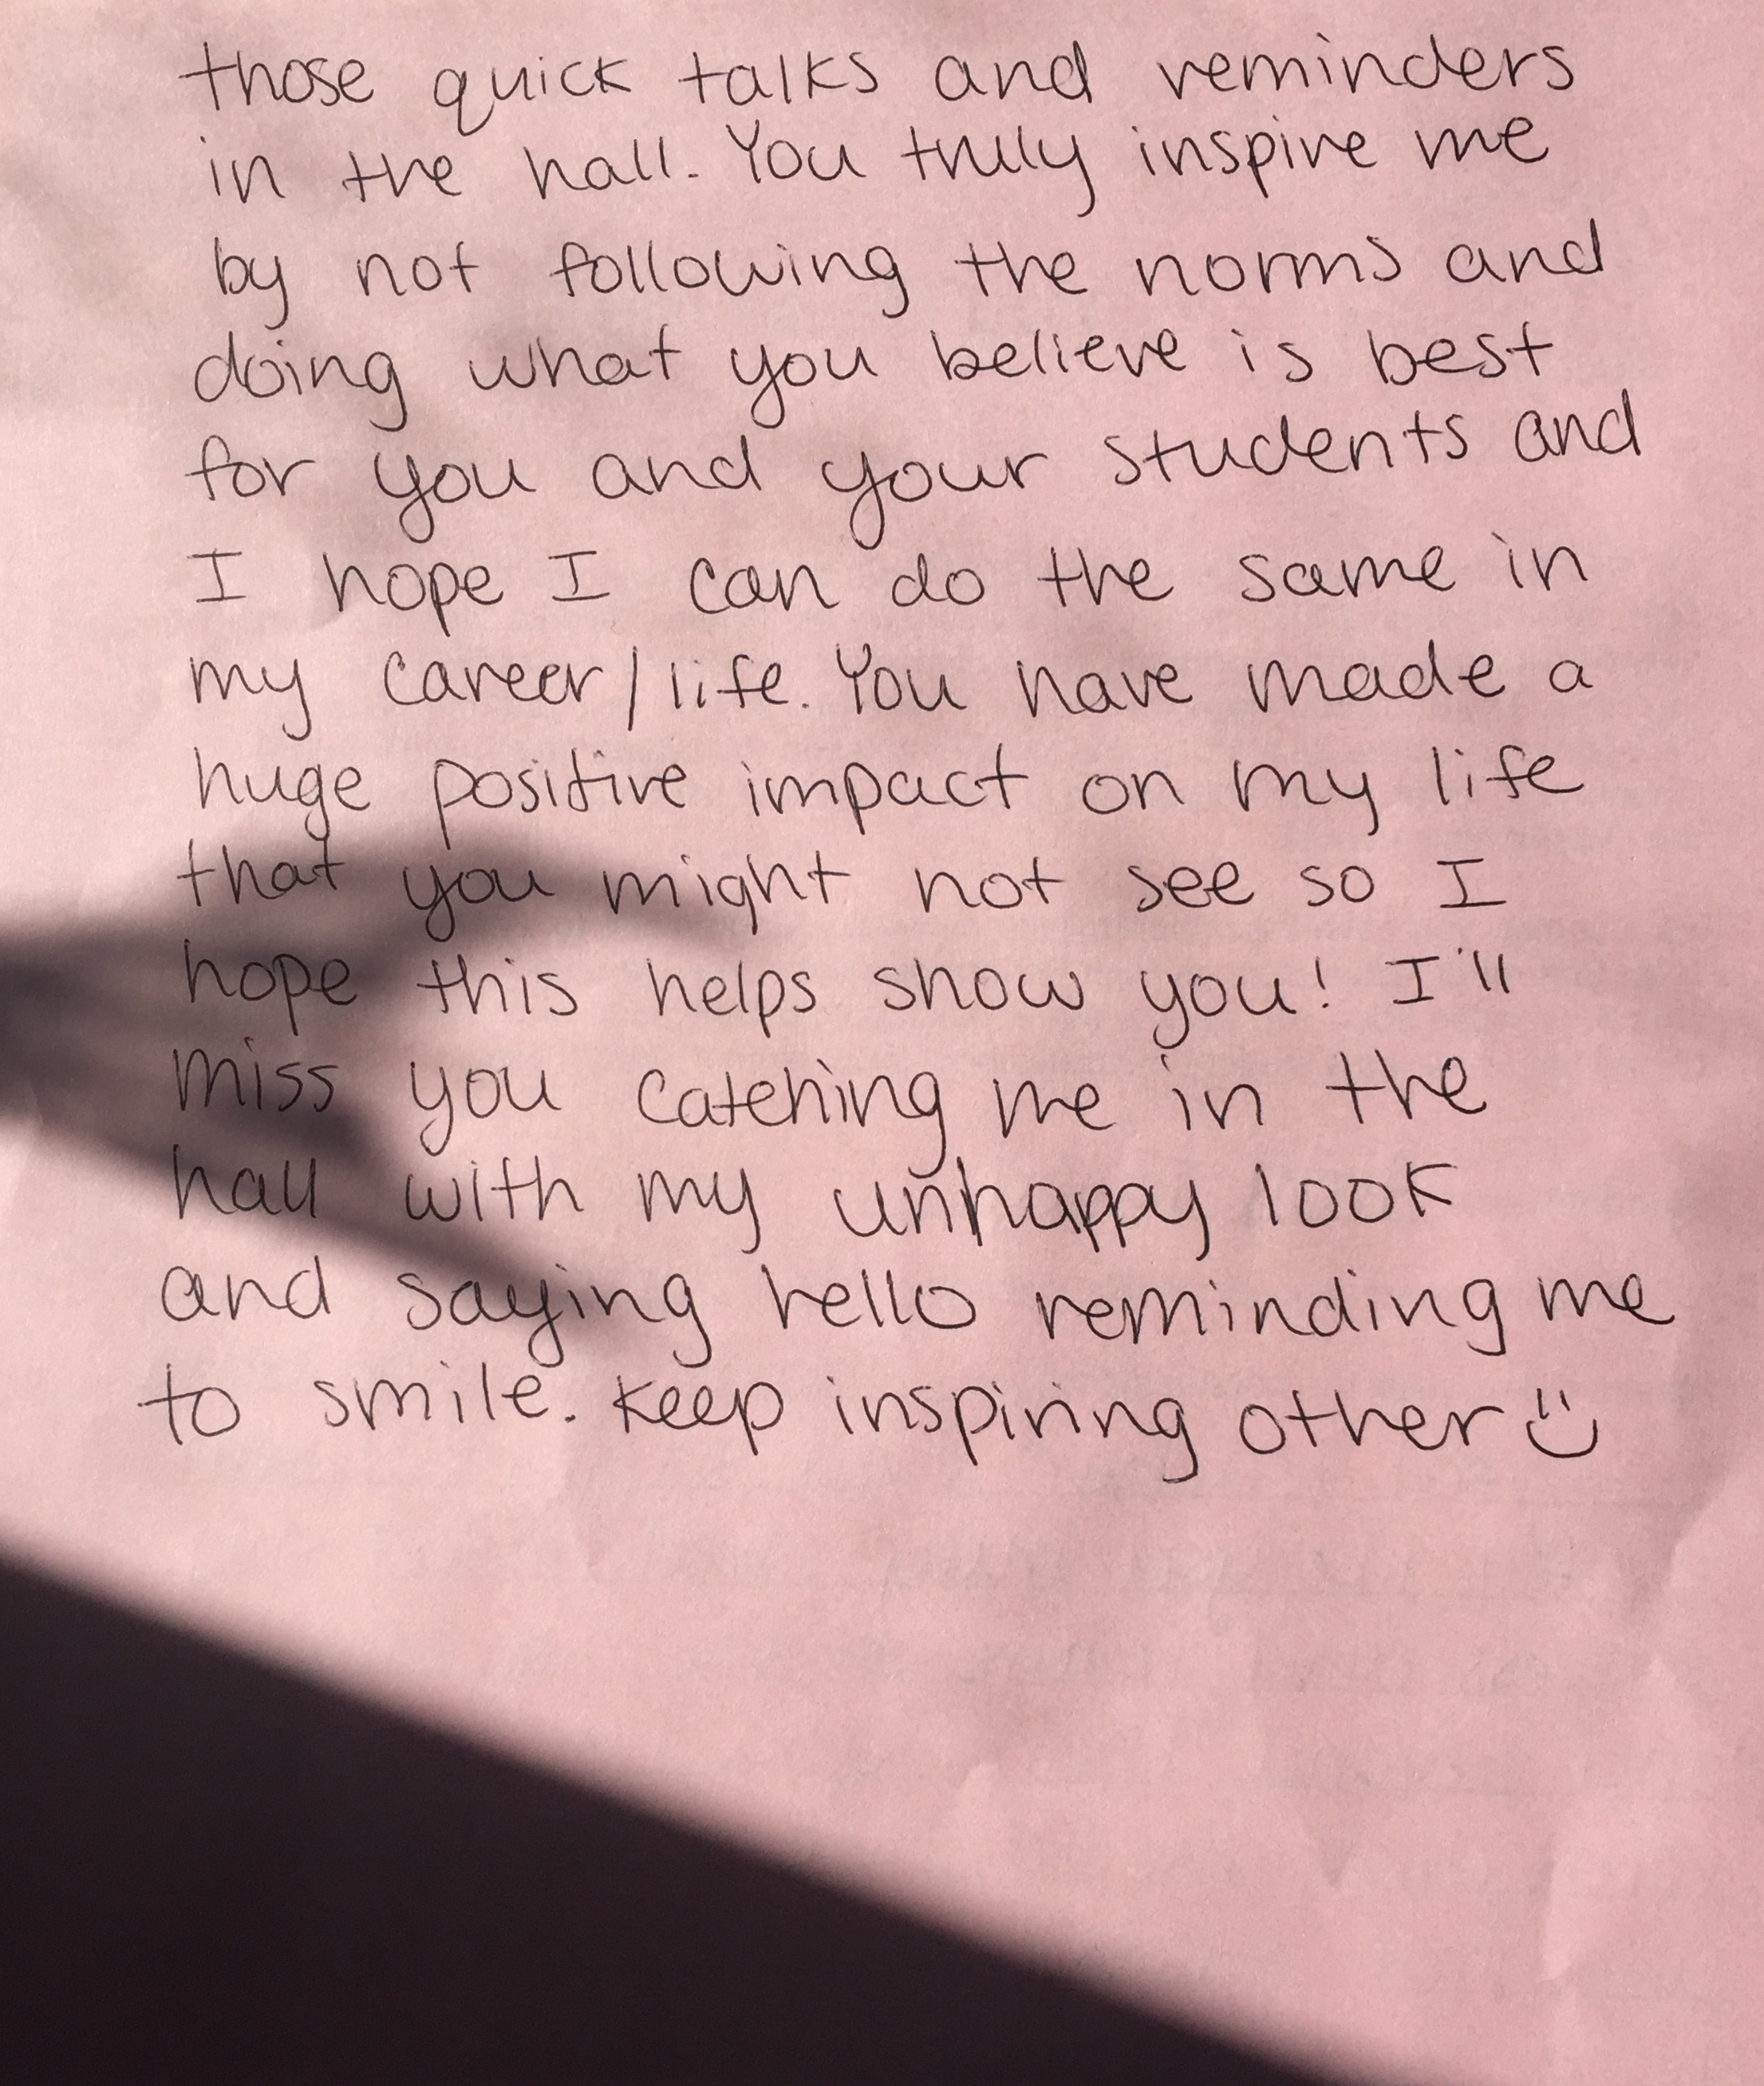 those quick talks and reminders
in the hall. You truly inspire me
by not following the norms and
doing what you believe is best
for you and your students and
I hope I can do the same in
my career/life. You have made a
huge positive impact on my life
that you might not see so I
hope this helps show you! I'll
miss you catching me in the
hall with my unhappy look
and saying hello reminding me
to smile. Keep inspiring other